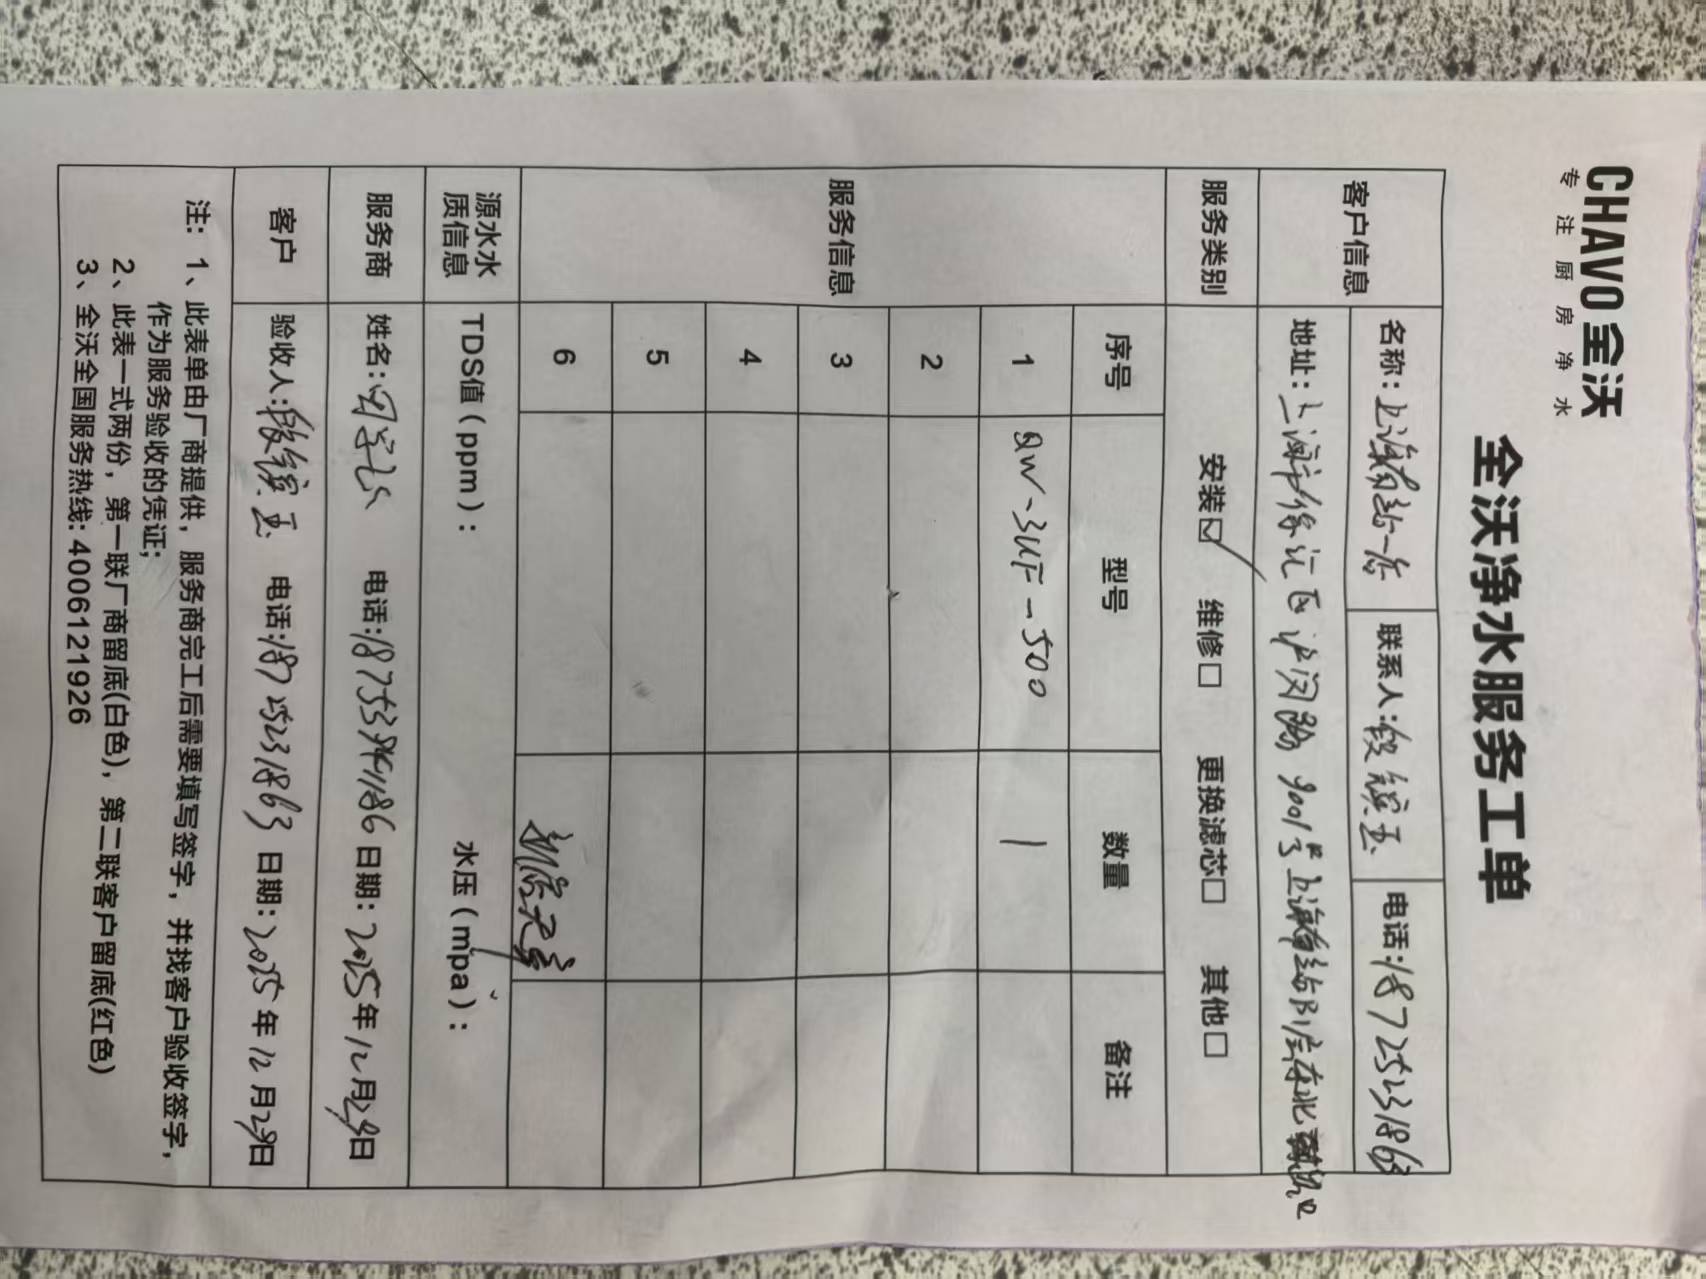 CHAVO全沃
专注厨房净水
全沃净水服务工单
客户信息
名称：上海南站一店 联系人：段缤玉 电话：18725231863
地址：上海市徐汇区沪闵路9001号上海南站B1层东北
服务类别 安装☑ 维修□ 更换滤芯□ 其他□
服务信息
序号 型号 数量 备注
1 QW-3UF-500 1
2
3
4
5
6
源水水质信息 TDS值（ppm）： 水压（mpa）：
服务商 姓名： 电话： 日期：2025年12月29日
客户 验收人：段缤玉 电话：18725231863 日期：2025年12月29日
注：1、此表单由厂商提供，服务商完工后需要填写签字，并找客户验收签字，
作为服务验收的凭证；
2、此表一式两份，第一联厂商留底(白色)，第二联客户留底(红色)
3、全沃全国服务热线：4006121926